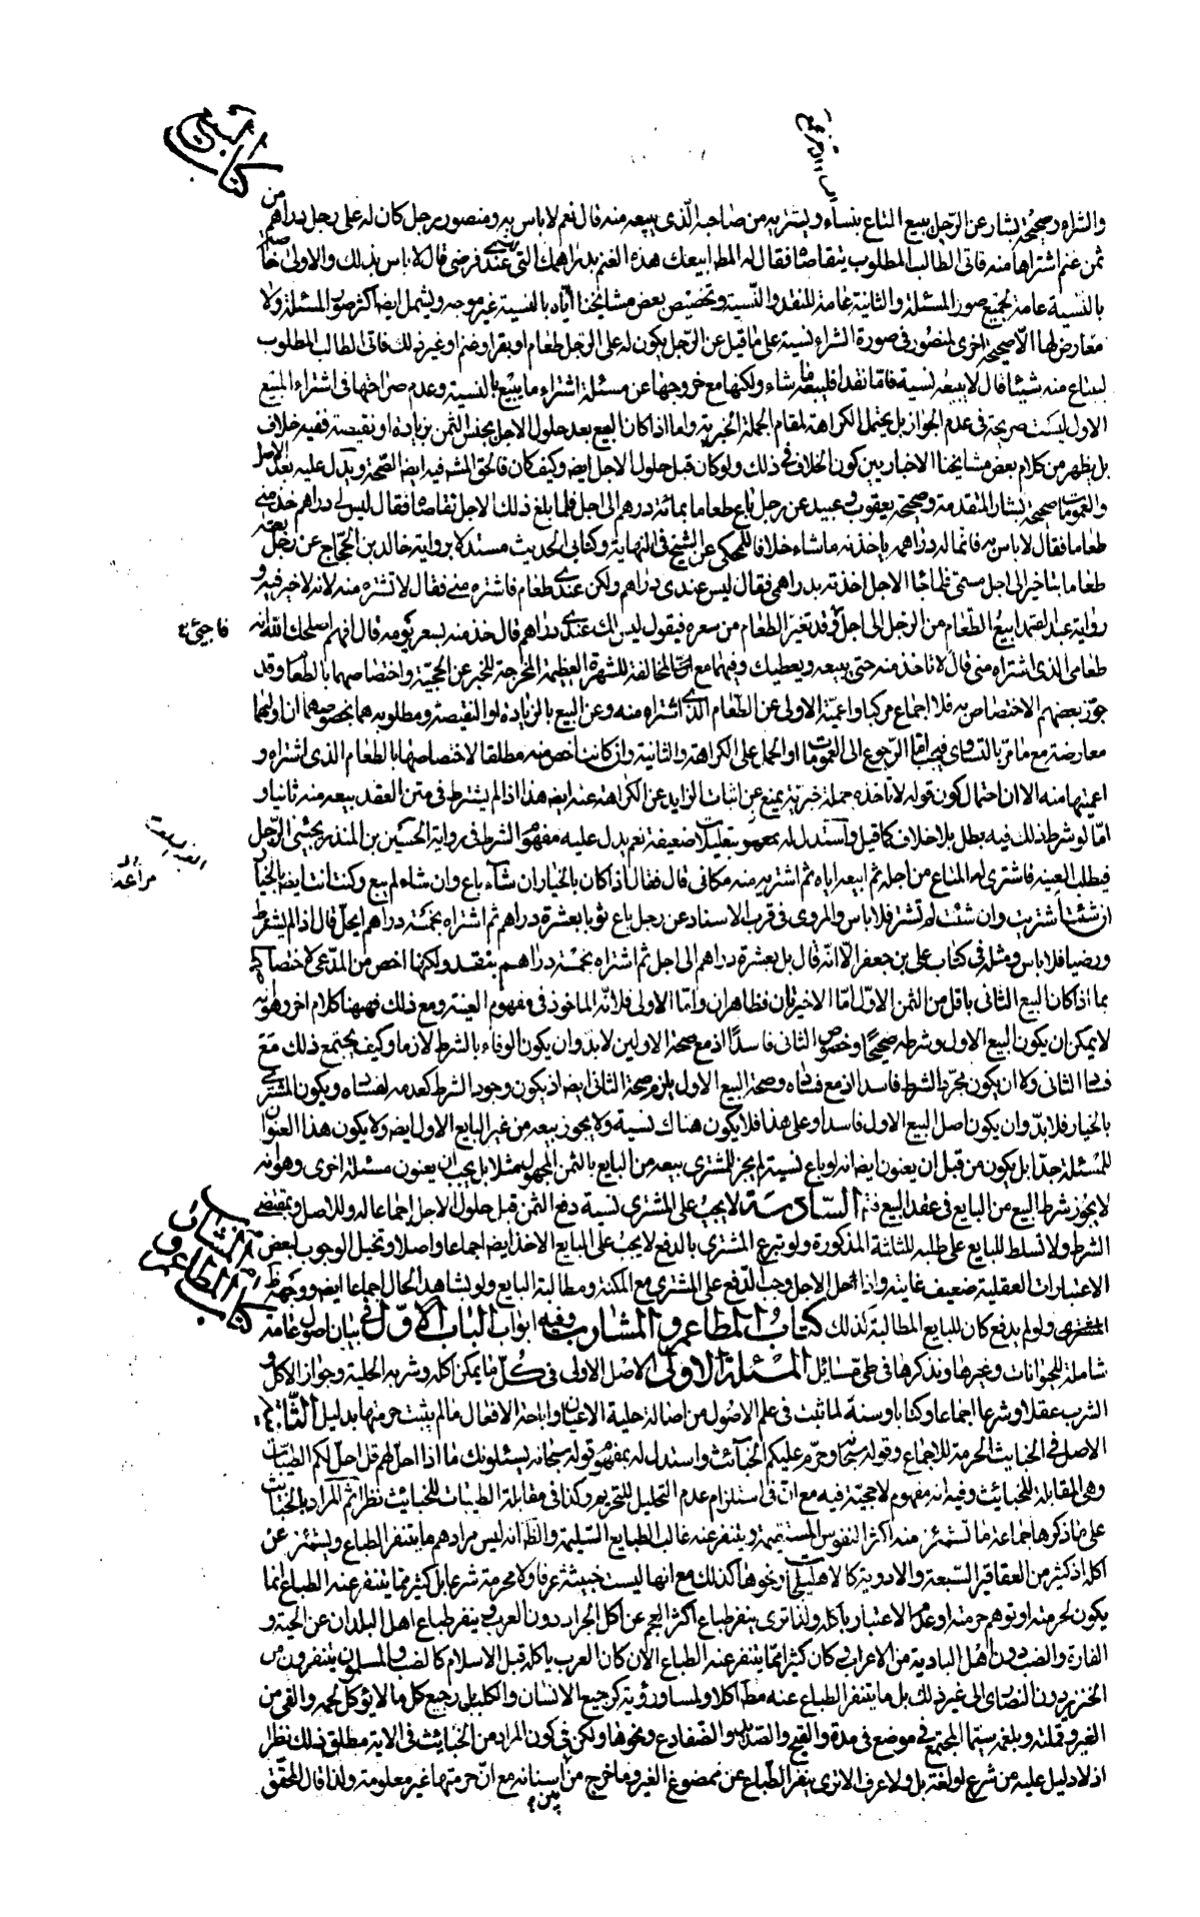 كتاب البيع
والشراء وصحيحة بشار عن الرجل يبيع المتاع بنساء ويشتريه من صاحبه الذى يبيعه منه قال نعم لا باس به ومنصور رجل كان له على رجل دراهم من
ثمن غنم اشتراها منه فاتى الطالب المطلوب يتقاضا فقال له المط ابيعك هذه الغنم بدراهمك التى عندى فرضى قال لا باس بذلك والاولى خاصة
بالنسية عامة لجميع صور المسئلة والثانية عامة للنقد والنسية وتخصيص بعض مشايخنا اياه بالنسية غير موجه ويشمل ايضا اكثر صور المسئلة ولا
معارض لها الا صحيحة اخرى لمنصور فى صورة الشراء نسية على ما قيل عن الرجل يكون له على الرجل طعام او بقر او غنم او غير ذلك فاتى الطالب المطلوب
ليبتاع منه شيئا قال لا يبيعه نسية فاما نقدا فليبعه ما شاء ولكنها مع خروجها عن مسئلة اشتراء ما يبيع بالنسية وعدم صراحتها فى اشتراء المبيع
الاول ليست صريحة فى عدم الجواز بل يحتمل الكراهة لمقام الجملة الخبرية واما اذا كان البيع بعد حلول الاجل بجنس الثمن بزيادة او نقيصة ففيه خلاف
بل يظهر من كلام بعض مشايخنا الاخباريين كون الخلاف فى ذلك ولو كان قبل حلول الاجل ايضا وكيف كان فالحق المشه فيه ايضا الصحة ويدل عليه بعد الاصل
والعمومات صحيحة بشار المتقدمة وصحيحة يعقوب وعبيد عن رجل باع طعاما بمائة درهم الى اجل فلما بلغ ذلك الاجل تقاضا فقال ليس لى دراهم خذ منى
طعاما فقال لا باس به فانما له دراهمه ياخذ به ما شاء خلافا للمحكى عن الشيخ فى النهاية وكتابى الحديث مستدلا برواية خالد بن الحجاج عن رجل بعته
طعاما بتاخير الى اجل مسمى فلما جاء الاجل اخذته بدراهمى فقال ليس عندى دراهم ولكن عندى طعام فاشتره منى فقال لا تشتره منه لانه لا خير فيه و
رواية عبد الصمد ابيع الطعام من الرجل الى اجل وقد تغير الطعام من سعره فيقول ليس لك عندى دراهم قال خذ منه بسعر يومه قال افهم اصلحك الله انه
فاجيئ
طعامى الذى اشتراه منى قال لا تاخذ منه حتى يبيعه ويعطيك وفيهما مع المخالفة للشهرة العظيمة المخرجة للخبر عن الحجية واختصاصهما بالطعام وقد
جوز بعضهم الاختصاص به فلا اجماع مركبا واعمية الاولى عن الطعام الذى اشتراه منه وعن البيع بالزيادة او النقيصة ومطلوبه هما بخصوصهما ان اولهما
معارضة مع ما مر بالتساوى فيجب اما الرجوع الى العمومات او الحمل على الكراهة والثانية وان كانت اخص منه مطلقا لاختصاصها بالطعام الذى اشتراه و
اعميتها منه الا ان احتمال كون قوله لا تاخذه جملة خبرية يمنع عن اثبات الزايد عن الكراهة عنه ايضا هذا اذا لم يشترط فى متن العقد بيعه منه ثانيا و
اما لو شرط ذلك فيه بطل بلا خلاف كما قيل واستدل له بتعليلات ضعيفة نعم يدل عليه مفهوم الشرط فى رواية الحسين بن المنذر يجيئنى الرجل
فيطلب العينة فاشترى له المتاع من اجله ثم ابيعه اياه ثم اشتريه منه مكانى قال فقال اذا كان بالخيار ان شاء باع وان شاء لم يبع وكنت انت ايضا بالخيار
ان شئت اشتريت وان شئت لم تشتر فلا باس والمروى فى قرب الاسناد عن رجل باع ثوبا بعشرة دراهم ثم اشتراه بخمسة دراهم ايحل قال اذا لم يشترط
ورضيا فلا باس ومثله فى كتاب على بن جعفر الا انه قال بل بعشرة دراهم الى اجل ثم اشتراه بخمسة دراهم بنقد ولكنها اخص من المدعى لاختصاصها
بما اذا كان البيع الثانى باقل من الثمن الاول اما الاخيرتان فظاهران واما الاولى فلانه الماخوذ فى مفهوم العينة ومع ذلك فههنا كلام اخر وهو انه
لا يمكن ان يكون البيع الاول وشرطه صحيحا وخصوص الثانى فاسدا اذ مع صحة الاولين لا بد وان يكون الوفاء بالشرط لازما وكيف يجتمع ذلك مع
فساد الثانى ولا ان يكون مجرد الشرط فاسدا اذ مع فساده وصحة البيع الاول يلزم صحة الثانى ايضا اذ يكون وجود الشرط كعدمه لفساده ويكون المشترى
بالخيار فلا بد وان يكون اصل البيع الاول فاسدا وعلى هذا فلا يكون هناك نسية ولا يجوز بيعه من غير البايع الاول ايضا ولا يكون هذا العنوان
للمسئلة جيدا بل يكون من قبل ان يعنون ايضا انه لو باع نسية لم يجز للمشترى بيعه من البايع بالثمن المجهول مثلا بل يجب ان يعنون مسئلة اخرى وهو انه
لا يجوز شرط البيع من البايع فى عقد البيع السادسة لا يجب على المشترى نسية دفع الثمن قبل حلول الاجل اجماعا له وللاصل وبمقتضى
الشرط ولا تسلط للبايع على طلبه للثالثة المذكورة ولو تبرع المشترى بالدفع لا يجب على البايع الاخذ ايضا اجماعا واصلا وتخيل الوجوب لبعض
كتاب المطاعم والمشارب
الاعتبارات العقلية ضعيف غايته واذا حل الاجل وجب الدفع على المشترى مع المكنة ومطالبة البايع ولو بشاهد الحال اجماعا ايضا ووجهه ظ
ولو لم يدفع كان للبايع المطالبة كذلك كتاب المطاعم والمشارب وفيه ابواب الباب الاول فى بيان اصول عامة
شاملة للحيوانات وغيرها ونذكرها فى طى مسائل المسئلة الاولى الاصل الاولى فى كل ما يمكن اكله وشربه الحلية وجواز الاكل و
الشرب عقلا وشرعا اجماعا وكتابا وسنة لما ثبت فى علم الاصول من اصالة حلية الاعيان واباحة الافعال ما لم يثبت حرمتها بدليل الثانية
الاصل فى الخبايث الحرمة للاجماع وقوله سبحانه وحرم عليكم الخبائث واستدل له بمفهوم قوله سبحانه يسئلونك ماذا احل لهم قل احل لكم الطيبات
وهى المقابلة للخبائث وفيه انه مفهوم لا حجية فيه مع ان فى استلزام عدم التحليل للتحريم وكذا فى مقابلة الطيبات للخبائث نظر ثم المراد بالخبائث
على ما ذكرها جماعة ما تشمئز منه اكثر النفوس المستقيمة ويتنفر عنه غالب الطبايع السليمة والظ انه ليس مرادهم ما يتنفر الطباع ويشمئز عن
اكله اذ كثير من العقاقير البشعة والادوية كالاهليلج ونحوها كذلك مع انها ليست خبيثة عرفا ولا محرمة شرعا بل كثير مما يتنفر عنه الطباع انما
يكون لحرمته او توهم حرمته او عدم الاعتياد باكله ولذا ترى يتنفر طباع اكثر العجم عن اكل الجراد دون العرب ويتنفر طباع اهل البلدان عن الحية و
الفارة والضب دون اهل البادية من الاعراب وكان كثير مما يتنفر عنه الطباع الان كان العرب ياكله قبل الاسلام كالضب والمسلمون يتنفرون من
الخنزير دون النصارى الى غير ذلك بل ما يتنفر الطباع عنه مطا اكلا ولمسا ورؤية كرجيع الانسان والكلب بل رجيع كل ما لا يؤكل لحمه والقى من
الغير وقملته وبلغمه سيما المجتمع فى موضع فى مدة والقيح والصديد والضفادع ونحوها ولكن فى كون المراد من الخبائث فى الاية مطلق ذلك نظر
اذ لا دليل عليه من شرع او لغة بل ولا عرف الا ترى يتنفر الطباع عن ممضوغ الغير وما خرج من بين اسنانه مع ان حرمتها غير معلومة ولذا قال المحقق